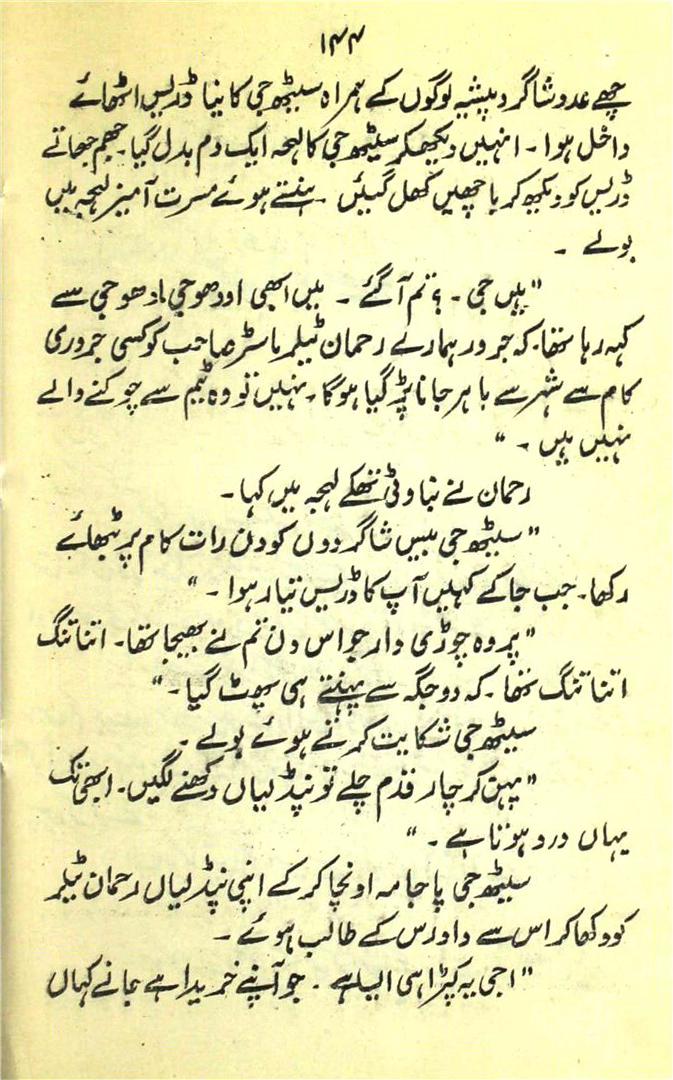 ۱۴۴
چھے عدد شاگرد پیشہ لوگوں کے ہمراہ سیٹھ جی کا نیا ڈریس اٹھائے
داخل ہوا ۔ انہیں دیکھکر سیٹھ جی کا لہجہ ایک دم بدل گیا۔ جھم جھاتے
ڈریس کو دیکھ کر باچھیں کھل گئیں ۔ ہنستے ہوئے مسرت آمیز لہجہ میں
بولے ۔
"ہیں جی ۔ ؟ تم آ گئے ۔ میں ابھی اودھو جی مادھو جی سے
کہہ رہا تھا۔ کہ جرور ہمارے رحمان ٹیلر ماسٹر صاحب کو کسی جروری
کام سے شہر سے باہر جانا پڑ گیا ہوگا۔ نہیں تو وہ ٹیم سے چوکنے والے
نہیں ہیں ۔ "
رحمان نے بناوٹی تھکے لہجہ میں کہا۔
"سیٹھ جی بیس شاگردوں کو دن رات کام پر بٹھائے
رکھا۔ جب جا کے کہیں آپ کا ڈریس تیار ہوا ۔ "
"پر وہ چوڑی دار جو اس دن تم نے بھیجا تھا۔ اتنا تنگ
اتنا تنگ تھا۔ کہ دو جگہ سے پہنتے ہی پھٹ گیا۔"
سیٹھ جی شکایت کرتے ہوئے بولے ۔
"پہن کر چار قدم چلے تو پنڈلیاں دکھنے لگیں۔ ابھی تک
یہاں درد ہوتا ہے ۔ "
سیٹھ جی پاجامہ اونچا کر کے اپنی پنڈلیاں رحمان ٹیلر
کو دکھا کر اس سے داد رس کے طالب ہوئے ۔
"اجی یہ کپڑا ہی ایسا ہے ۔ جو آپنے خریدا ہے جانے کہاں